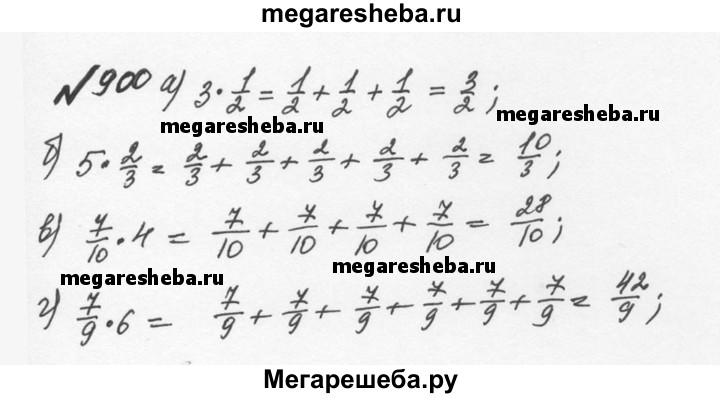 megaresheba.ru
№900 а) 3·1/2 = 1/2 + 1/2 + 1/2 = 3/2;
megaresheba.ru
б) 5·2/3 = 2/3 + 2/3 + 2/3 + 2/3 + 2/3 = 10/3;
в) 7/10·4 = 7/10 + 7/10 + 7/10 + 7/10 = 28/10;
megaresheba.ru megaresheba.ru
г) 7/9·6 = 7/9 + 7/9 + 7/9 + 7/9 + 7/9 + 7/9 = 42/9;
Мегарешеба.ру